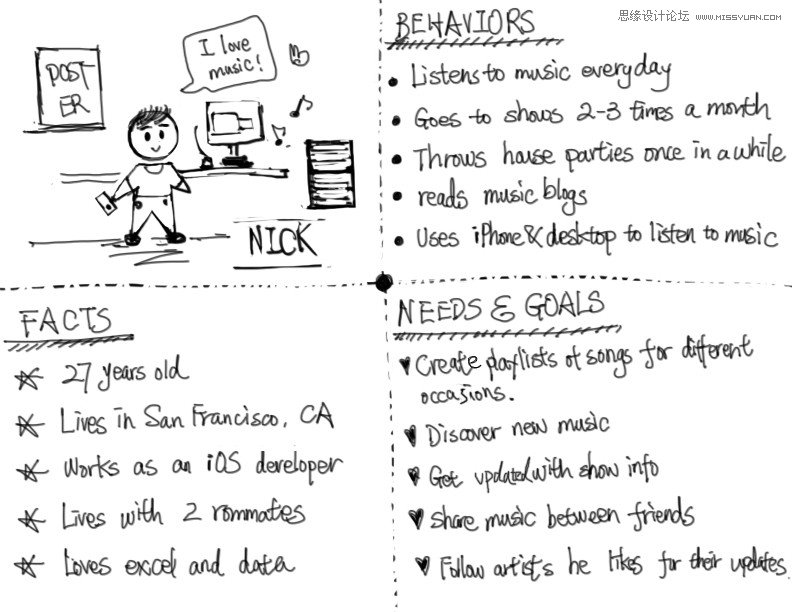 思缘设计论坛 WWW.MISSYUAN.COM
POST
ER
I love
music!
NICK
BEHAVIORS
Listens to music everyday
Goes to shows 2-3 times a month
Throws house parties once in a while
reads music blogs
Uses iPhone & desktop to listen to music
FACTS
27 years old
Lives in San Francisco, CA
Works as an iOS developer
Lives with 2 rommates
Loves excel and data
NEEDS & GOALS
Create playlists of songs for different
occasions.
Discover new music
Get updated with show info
Share music between friends
Follow artists he likes for their updates.